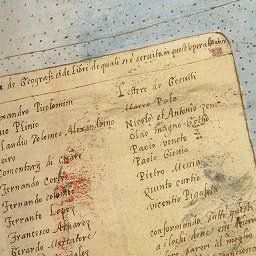 de Geografi et de libre de quali si è servito in quest opera l'Autore
Alexandro Picolomini
Plinio
Claudio Tolomeo Alexandrino
Comentarij di Cesare
Fernando Cortes
Fernando colombo
Ferrante Lopez
Francesco Alvarez
Girardo Mercatore
Lettere de Gesuiti
Marco Polo
Nicolò et Antonio Zeni
Olao magno Gotho
Paolo veneto
Paolo Giovio
Pietro Messia
Quinto curtio
vicentio Pigafeta
conformando